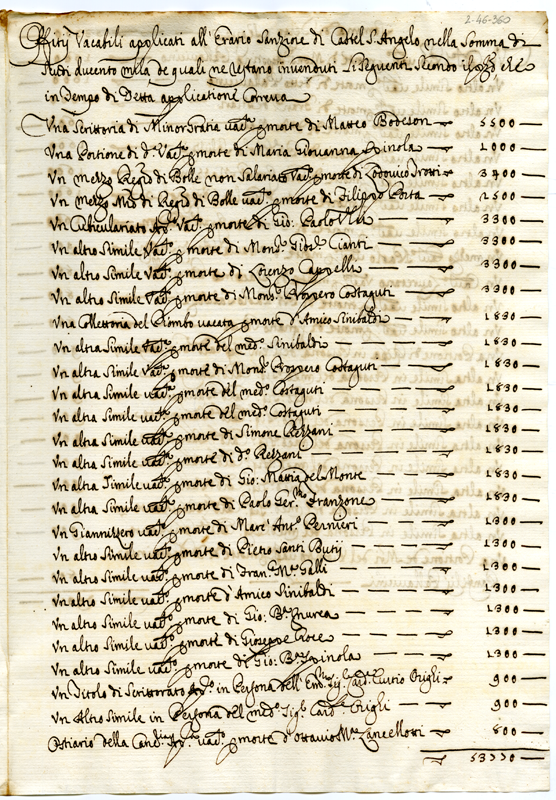 2-46-360
Offitij Vacabili applicati all'Erario Sanziore di Castel S. Angelo nella Somma di
scudi ducento mila de quali ne restano invenduti li seguenti secondo il
in tempo di detta applicatione correva
Una Scrittoria di Minor Gratia vac.ta p morte di Matteo Bodeson 5500
Una Portione di d.a Vac.ta p morte di Maria Giovanna Spinola 1000
Un mezzo Reg.ro di Bolle non Salariato Vac.to p morte di Lodovico 3400
Un mezzo Reg.ro di Bolle vac.to p morte di Filippo Costa 2500
Un Cubiculariato Vac.to p morte di Gio: Paolo 3300
Un altro Simile Vac.to p morte di Mons.r Cianti 3300
Un altro Simile vac.to p morte di Lorenzo Cappelli 3300
Un altro Simile Vac.to p morte di Mons.r Prospero Costaguti 3300
Una Collettoria del Piombo vacata p morte d'Amico Sinibaldi 1830
Un altra Simile vac.ta p morte del med.o Sinibaldi 1830
Un altra Simile vac.ta p morte di Mons.r Prospero Costaguti 1830
Un altra Simile vac.ta p morte del med.o Costaguti 1830
Un altra Simile vac.ta p morte del med.o Costaguti 1830
Un altra Simile vac.ta p morte di Simone Rezzani 1830
Un altra Simile vac.ta p morte di d.o Rezzani 1830
Un altra Simile vac.ta p morte di Gio: Maria del Monte 1830
Un altra Simile vac.ta p morte di Paolo Ger.mo Franzone 1830
Un Giannizzero vac.to p morte di Marc'Ant.o Pernieri 1300
Un altro Simile vac.to p morte di Pietro Santi Butij 1300
Un altro Simile vac.to p morte di Fran.co M.a Galli 1300
Un altro Simile vac.to p morte d'Amico Sinibaldi 1300
Un altro Simile vac.to p morte di Gio: B.a 1300
Un altro Simile vac.to p morte di Gioseppe 1300
Un altro Simile vac.to p morte di Gio: B.a Spinola 1300
Un Titolo di Scrittorato in Persona dell'Em.mo Sig.r Card.l Curtio Origli 900
Un Altro Simile in Persona del med.o Sig.r Card.l Origli 900
Ostiario della Canc.ria vac.to p morte d'Ottavio M.a Lancellotti 800
53770